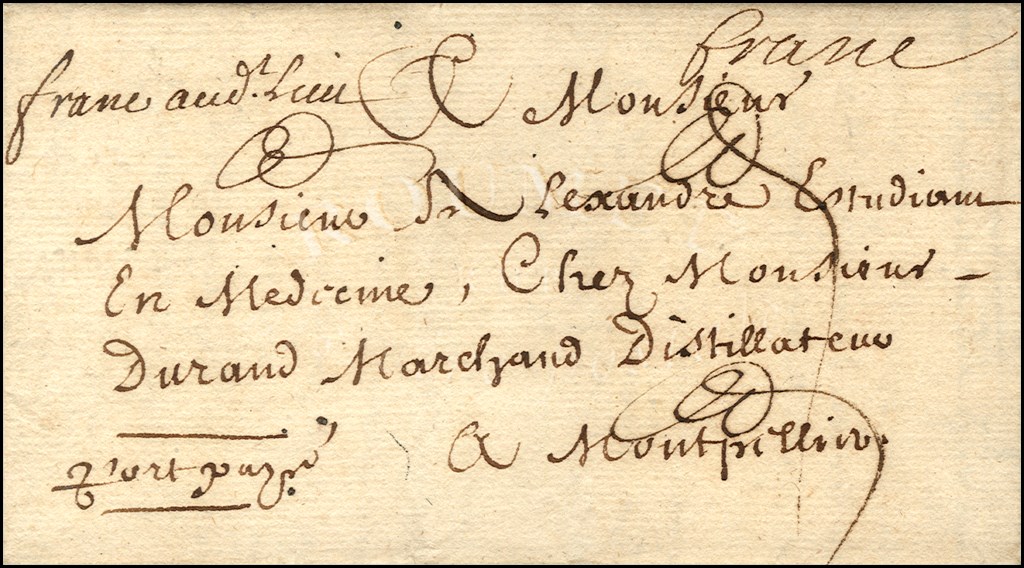 franc
franc aud.t Lieu A Monsieur
Monsieur Alexandre Estudiant
En Medecine, Chez Monsieur -
Durand Marchand Distillateur
A Montpellier.
Port payé